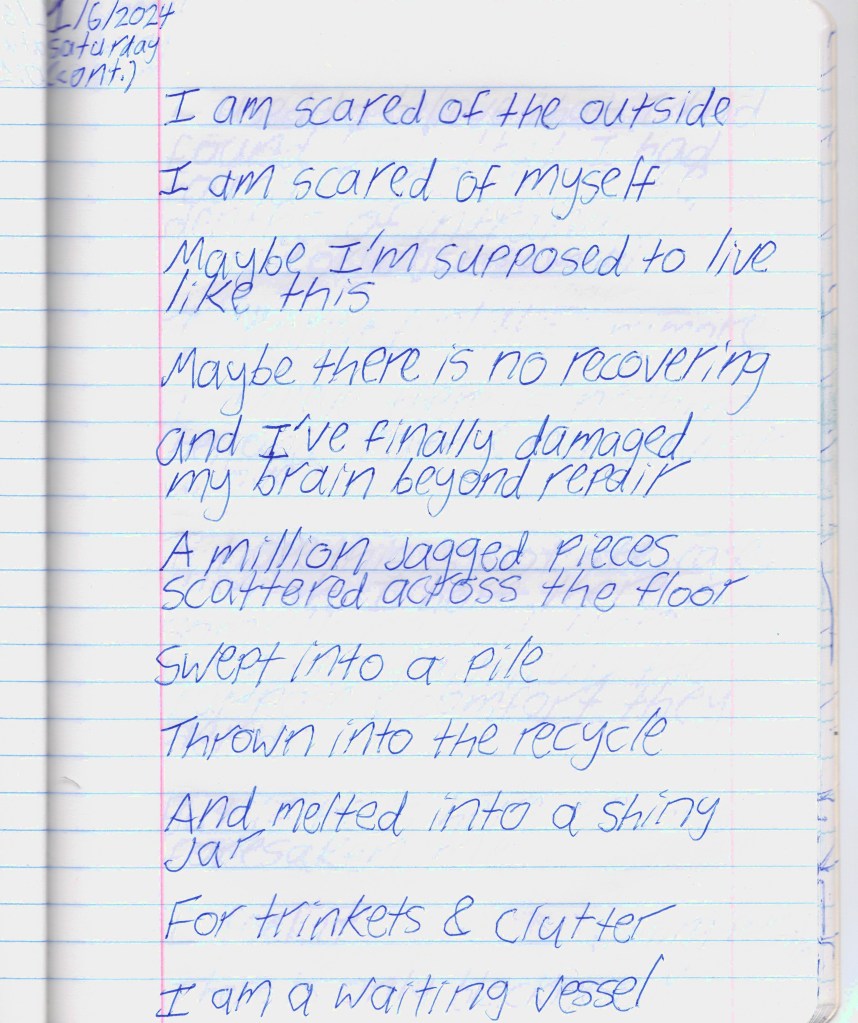 1/6/2024
saturday
(cont.)
I am scared of the outside
I am scared of myself
Maybe I'm supposed to live
like this
Maybe there is no recovering
and I've finally damaged
my brain beyond repair
A million jagged pieces
scattered across the floor
Swept into a pile
Thrown into the recycle
And melted into a shiny
jar
For trinkets & clutter
I am a waiting vessel